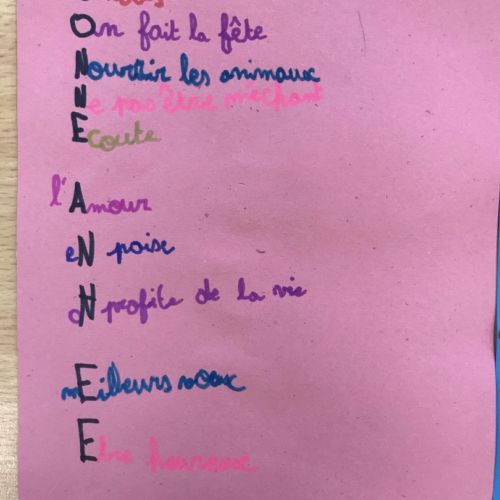 On fait la fête
Nourrir les animaux
Ne pas être méchant
Ecoute
l'Amour
eN poise
oN profite de la vie
mEilleurs voeux
Etre heureux